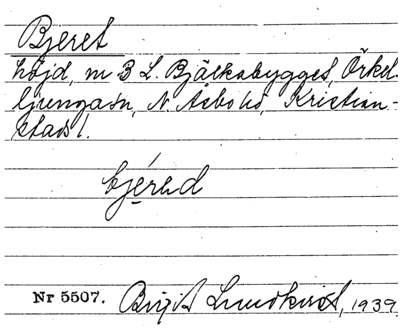 Bjeret
höjd, m B L. Bjälkabygget, Örkel-
ljungasn, N. Åsbo hd, Kristian-
stads l.
bjérəd
Nr 5507. Birgit Lundkvist, 1939